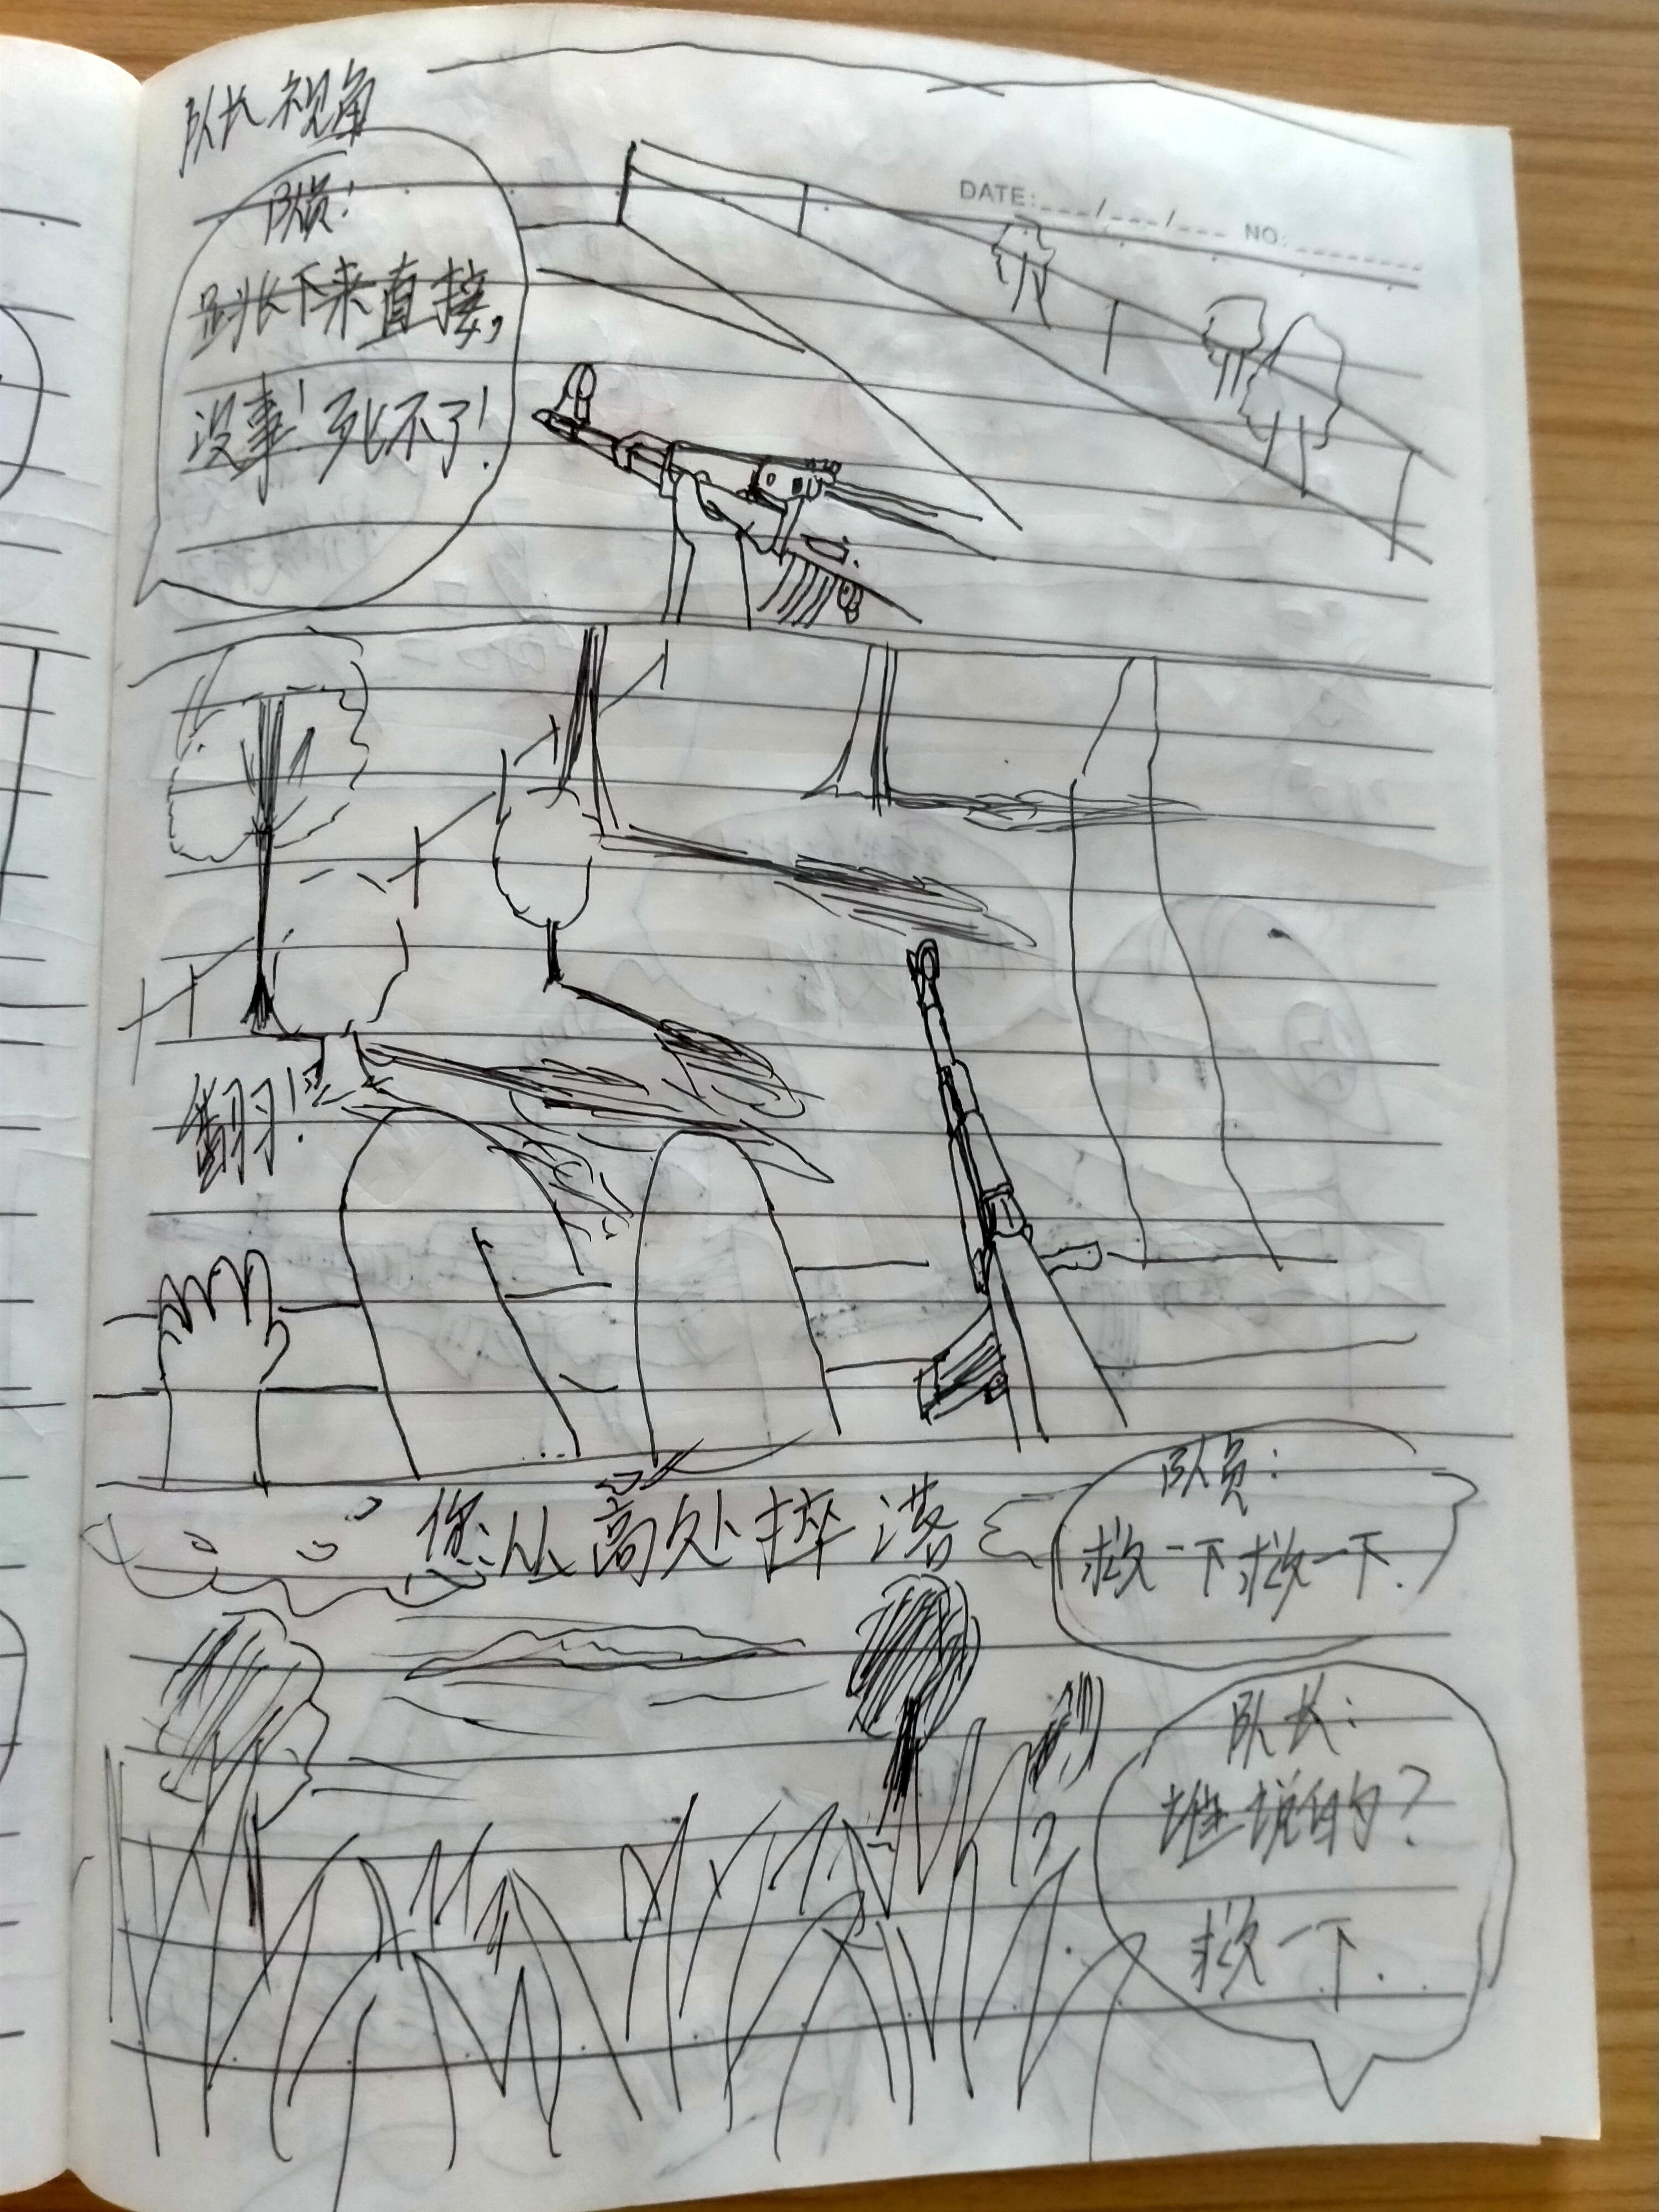 队长视角
DATE:___/___/___ NO:________
队员:
跳下来直接,
没事!死不了!
翻!
您从高处摔落
队员:
救一下救一下.
队长:
谁说的?
救一下.